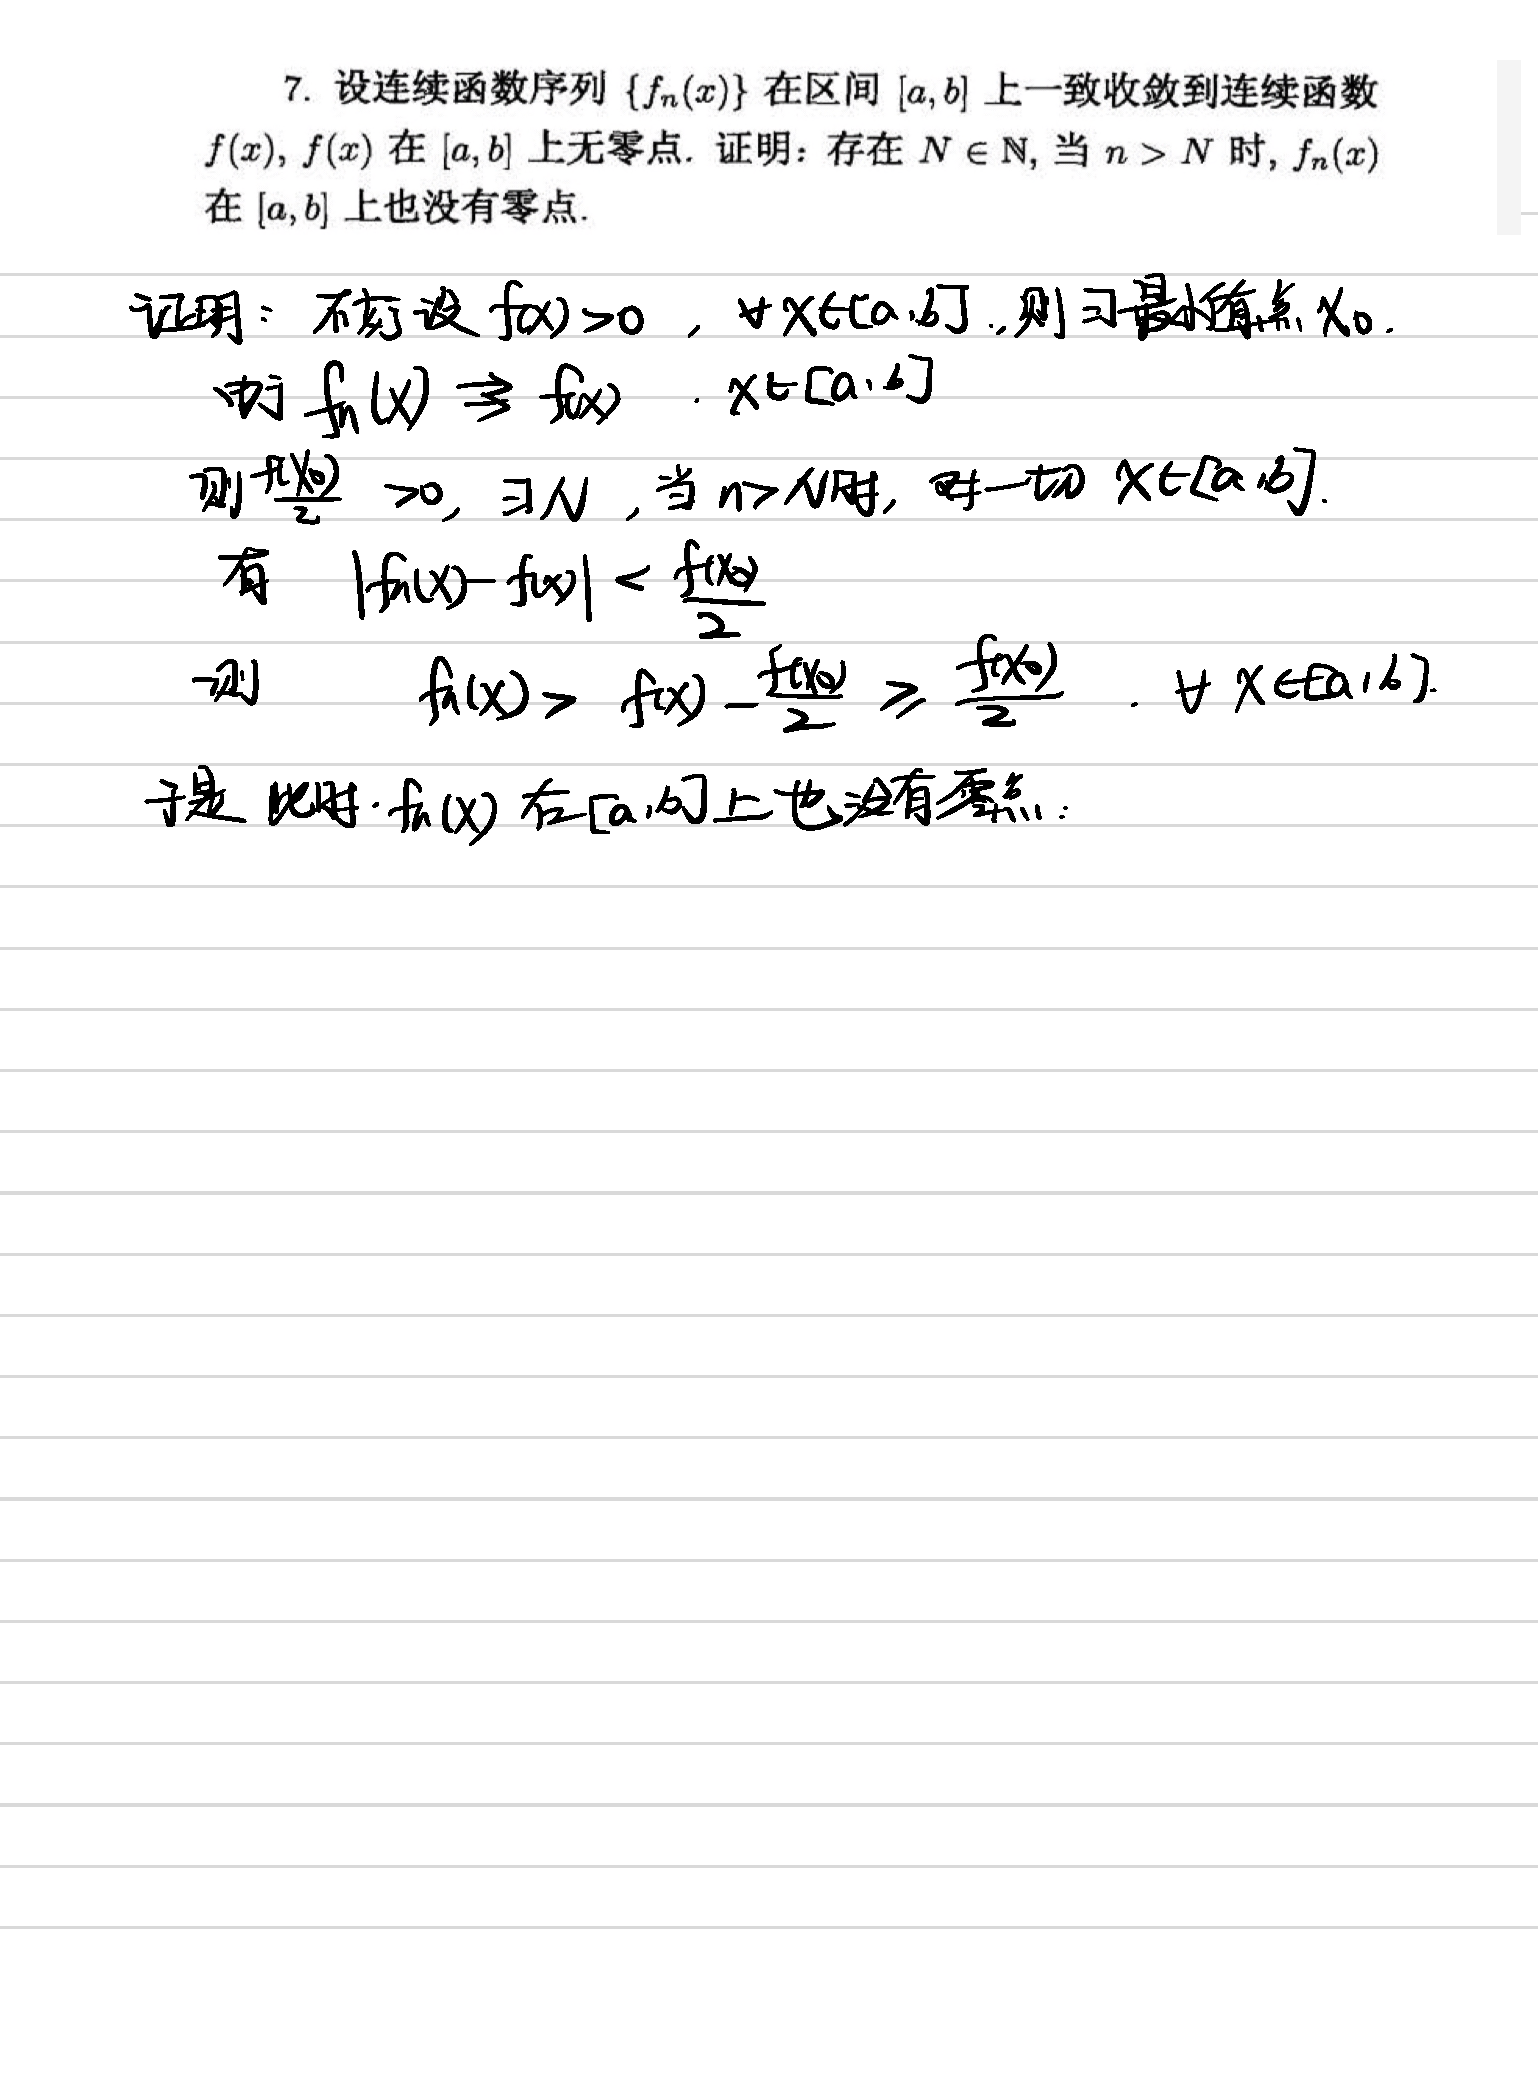 7. 设连续函数序列 {fₙ(x)} 在区间 [a, b] 上一致收敛到连续函数
f(x), f(x) 在 [a, b] 上无零点. 证明: 存在 N ∈ ℕ, 当 n > N 时, fₙ(x)
在 [a, b] 上也没有零点.
证明: 不妨设 f(x)>0, ∀x∈[a,b]., 则∃最小值点 x₀.
由于 fₙ(x) ⇉ f(x) . x∈[a,b]
则 f(x₀)/2 >0, ∃N, 当 n>N时, 对一切 x∈[a,b].
有 |fₙ(x)-f(x)| < f(x₀)/2
则 fₙ(x) > f(x) - f(x₀)/2 ⩾ f(x₀)/2 . ∀ x∈[a,b].
于是 此时. fₙ(x) 在[a,b]上也没有零点.